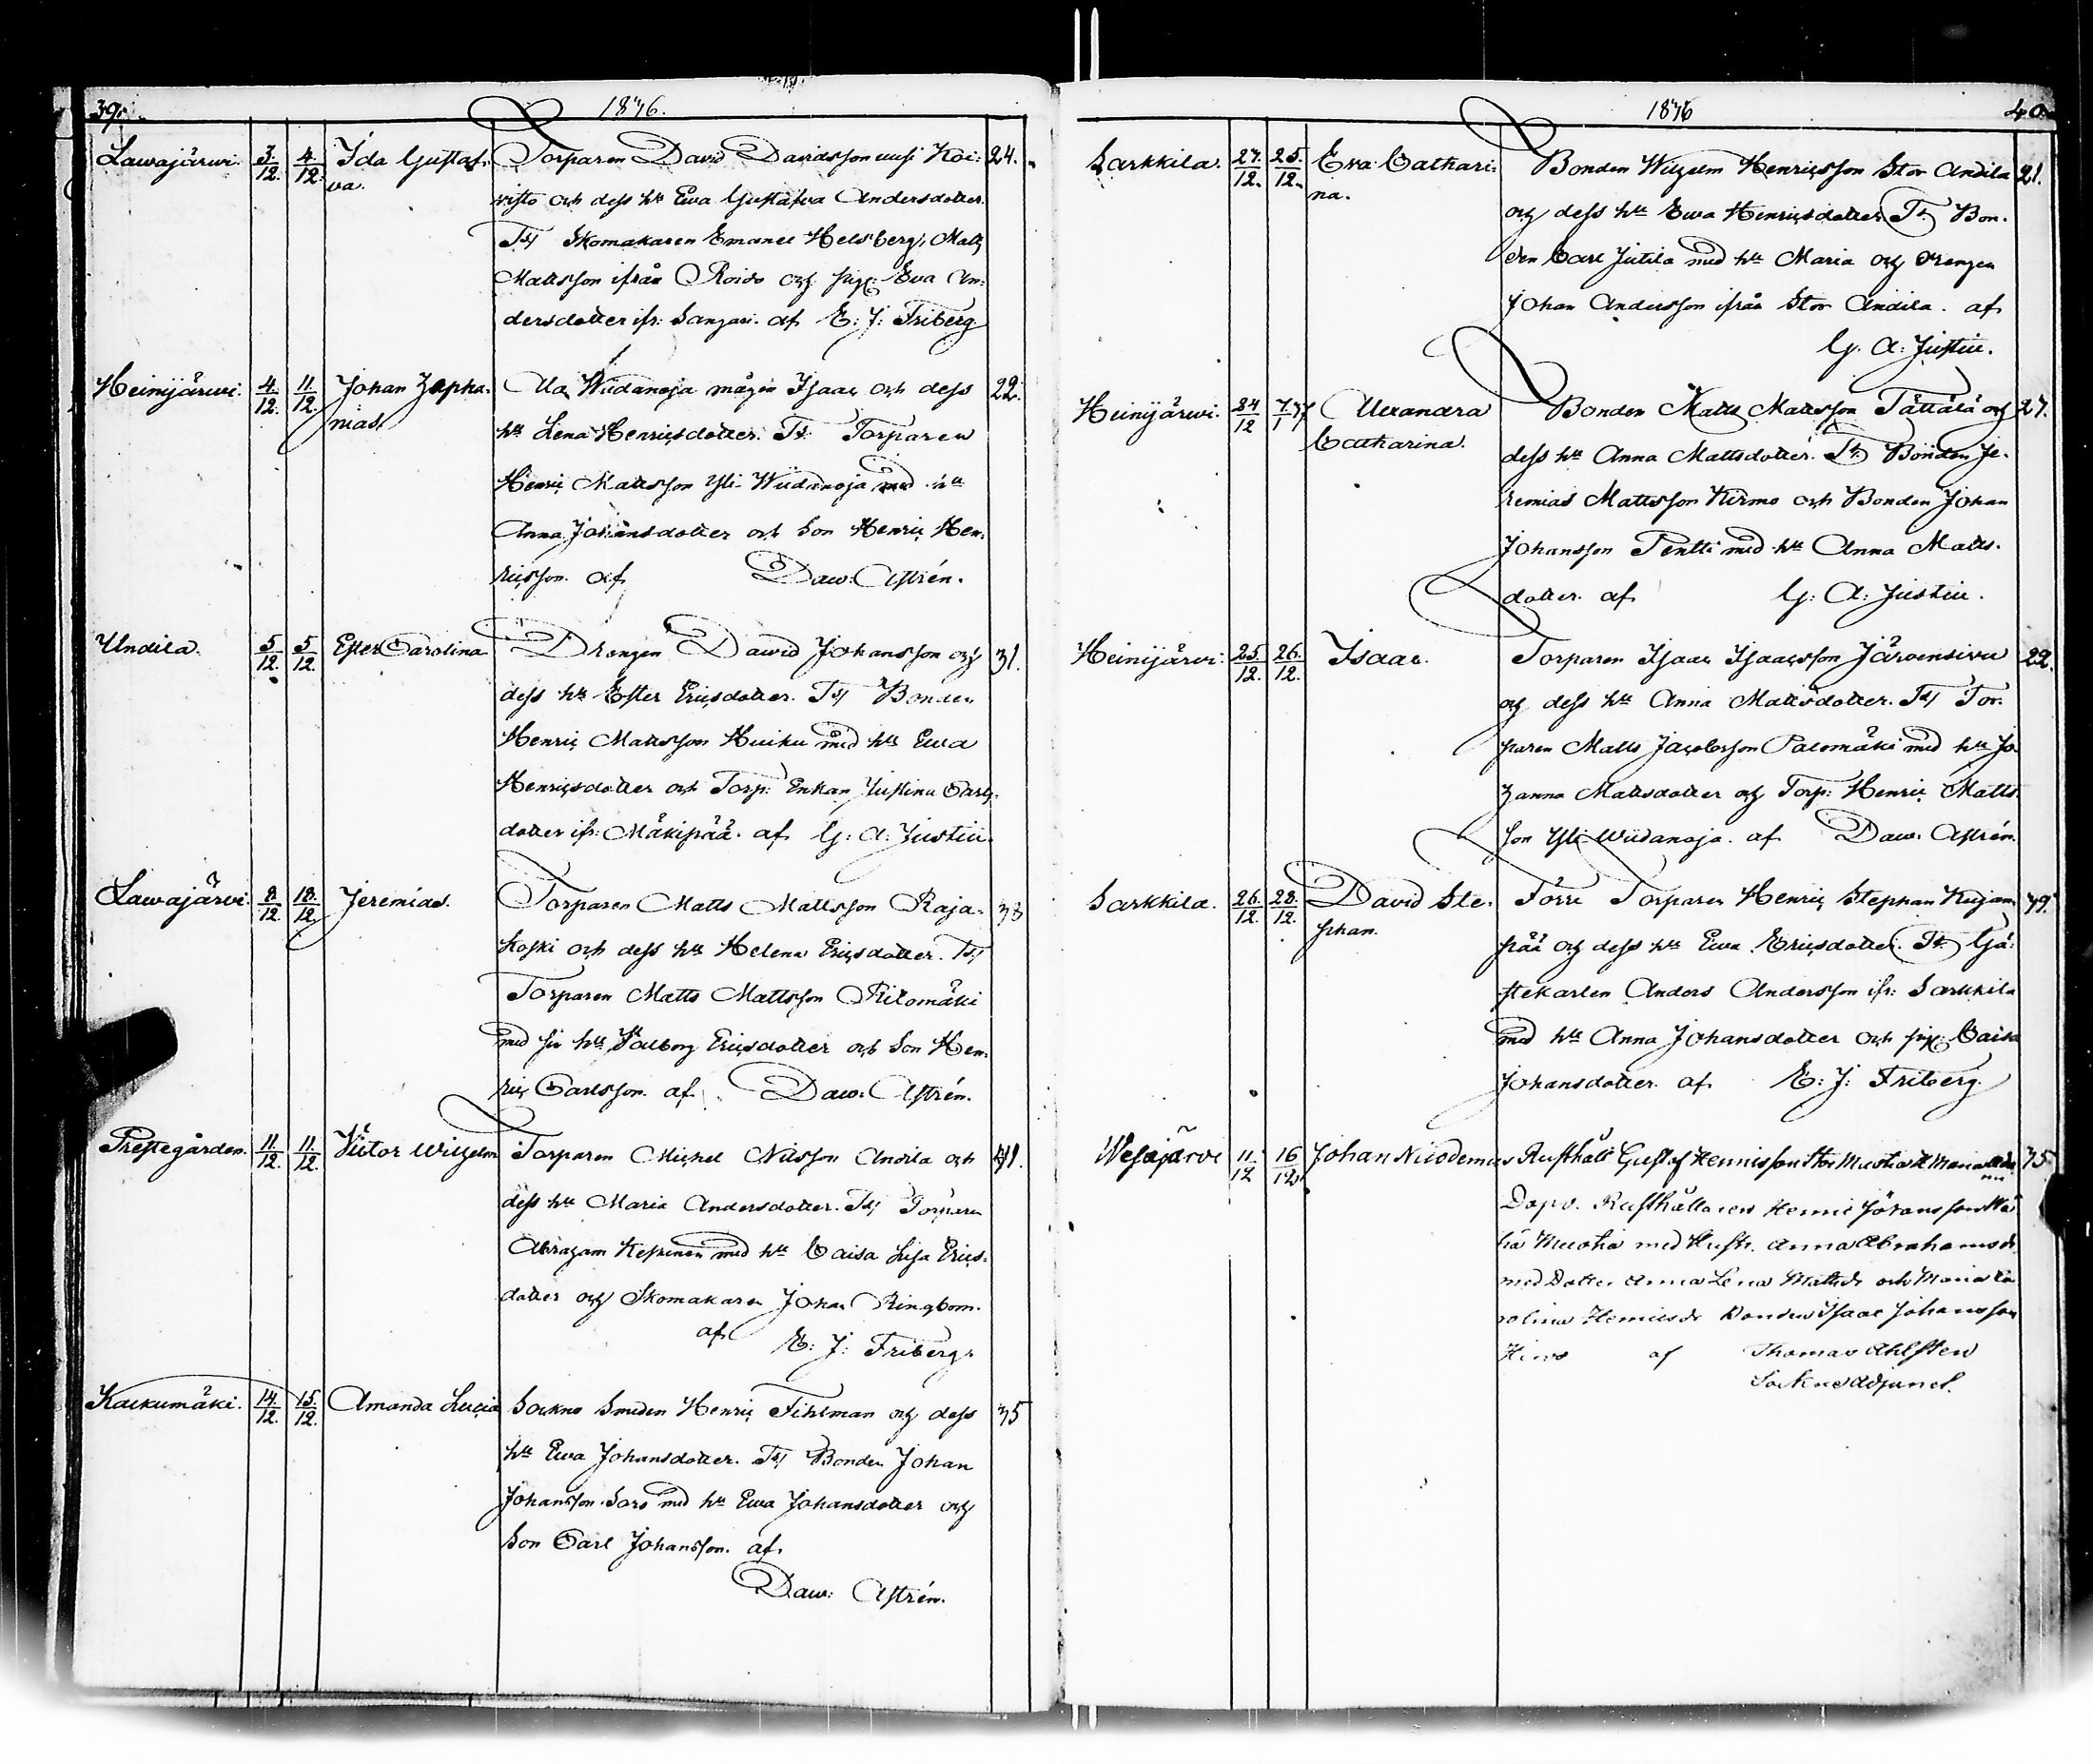 39. 1876.
Lawajärwi. 3/12. 4/12. Ida Gustaf- Torparen David Davidsson uusi Koi- 24.
va. visto och dess hu Ewa Gustafva Andersdotter.
Td Skomakaren Emanel Helsberg, Matts
Mattsson ifrån Roido och pig: Eva An-
dersdotter ifr: Sangari. af E: J: Friberg
Heinijärwi. 4/12. 11/12. Johan Zepha- Ala Wiidanoja mågen Isaac och dess 22.
nias. hu Lena Henricsdotter. Td. Torparen
Henric Mattsson Yli Wiidanoja med hu
Anna Johansdotter och Son Henric Hen-
ricsson. af Daw: Astrén.
Undila. 5/12. 5/12. Ester Carolina Drengen Dawid Johansson och 31.
dess hu Ester Ericsdotter. Td Bonden
Henric Mattsson Huiku med hu Ewa
Henricsdotter och Torp: Enkan Justina Carls-
dotter ifr: Mäkipää. af G: A: Justin.
Lawajärwi 8/12. 18/12. Jeremias. Torparen Matts Mattsson Raja- 33
koski och dess hu Helena Ericsdotter. Td
Torparen Matts Mattsson Riilomäki
med hu Walborg Ericsdotter och Son Hen-
ric Carlsson. af Daw: Astrén.
Prestegården. 11/12. 11/12. Victor Wilhelm Torparen Michel Nilsson Andila och 41.
dess hu Maria Andersdotter. Td Torparen
Abraham Keskinen med hu Caisa Lisa Erics-
dotter och Skomakaren Johan Ringbom.
af E: J: Friberg.
Kaukumäki. 14/12. 15/12. Amanda Lucia Sockne Smeden Henric Tihlman och dess 35
hu Ewa Johansdotter. Td Bonden Johan
Johansson Soro med hu Ewa Johansdotter och
Son Carl Johansson. af
Daw: Astrén.
1876 40.
Sarkkila. 24/12. 25/12. Eva Cathari- Bonden Wilhelm Henricsson Stor Andila 21.
na. och dess hu Ewa Henricsdotter Td Bon-
den Carl Jutila med hu Maria och drengen
Johan Andersson ifrån Stor Andila. af
G. A: Justin.
Heinijärwi. 24/12 7/1 77 Alexandra Bonden Matts Mattsson Tättälä och 27.
Catharina. dess hu Anna Mattsdotter. Td. Bonden Je-
remias Mattsson Kirmo och Bonden Johan
Johansson Pentti med hu Anna Matts-
dotter. af G: A: Justin.
Heinijärvi. 25/12. 26/12. Isaac. Torparen Isaac Isaacsson Järvensivu 22.
och dess hu Anna Mattsdotter. Td Tor-
paren Matts Jacobsson Palomäki med hu Jo-
hanna Mattsdotter och Torp: Henric Matts-
son Yli Wiidanoja. af Daw: Astrén.
Sarkkila. 26/12. 28/12. David Ste- Förre Torparen Henric Stephan Kujan- 39.
phan. pää och dess hu Ewa Ericsdotter. Td Gä-
stekarlen Anders Andersson ifr: Sarkkila
med hu Anna Johansdotter och pig: Caisa
Johansdotter. af E: J: Friberg.
Wesajärvi 11/12 16/12 Johan Nicodemus Rusthåll Gustaf Henricsson Stor Muotia H Maria 35
Dopv. Rusthållaren Henric Johansson Wä-
hä Muotia med Hustr. Anna Abrahamsdr
med Dotter Anna Lena Mattsdr och Maria Ca-
rolina Henricsdr Bonden Isaac Johansson
af Thomas Ahlsten
Sockneadjunct.